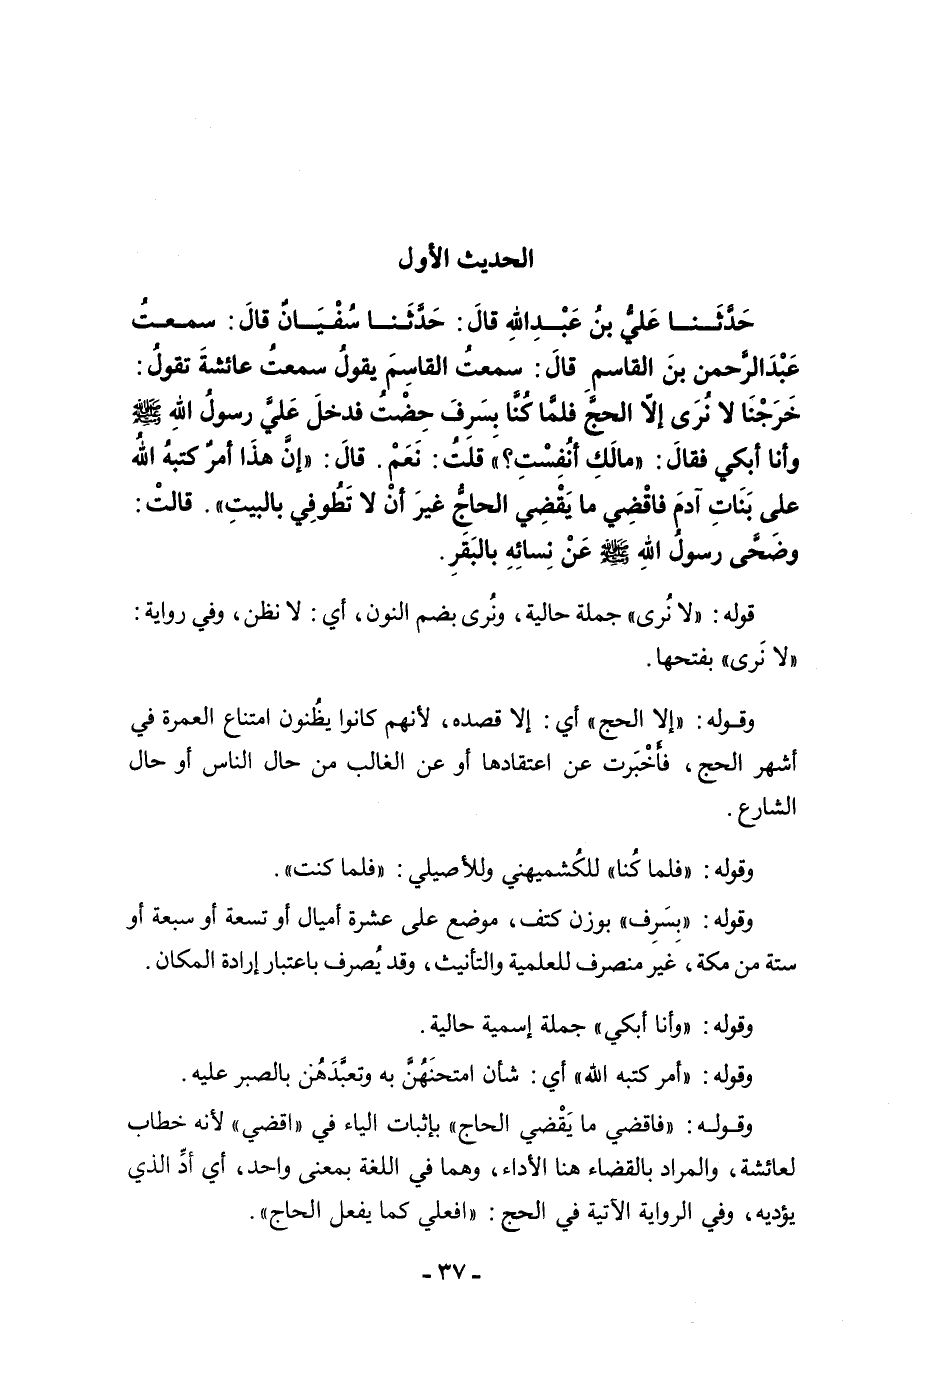 الحديث الأول
حَدَّثَنا عَليُّ بنُ عَبْدِاللهِ قالَ: حَدَّثَنا سُفْيَانٌ قالَ: سمعتُ
عَبْدَالرَّحمن بنَ القاسمِ قالَ: سمعتُ القاسِمَ يقولُ سمعتُ عائشةَ تقولُ:
خَرَجْنَا لا نُرَى إلاّ الحجَّ فلمَّا كُنَّا بِسَرفَ حِضْتُ فدخلَ عَليَّ رسولُ اللهِ ﷺ
وأنا أبكي فقالَ: «مالَكِ أنُفِسْتِ؟» قلتُ: نَعَمْ. قالَ: «إنَّ هذَا أمرٌ كتبهُ اللهُ
على بَنَاتِ آدمَ فاقْضِي ما يَقْضِي الحاجُّ غيرَ أنْ لا تَطُوفِي بالبيتِ». قالتْ:
وضَحَّى رسولُ اللهِ ﷺ عَنْ نِسائِهِ بالبَقَرِ.
قوله: «لا نُرى» جملة حالية، ونُرى بضم النون، أي: لا نظن، وفي رواية:
«لا نَرى» بفتحها.
وقوله: «إلا الحج» أي: إلا قصده، لأنهم كانوا يظُنون امتناع العمرة في
أشهر الحج، فأَخْبَرت عن اعتقادها أو عن الغالب من حال الناس أو حال
الشارع.
وقوله: «فلما كُنا» للكُشميهني وللأصيلي: «فلما كنت».
وقوله: «بِسَرِف» بوزن كتف، موضع على عشرة أميال أو تسعة أو سبعة أو
ستة من مكة، غير منصرف للعلمية والتأنيث، وقد يُصرف باعتبار إرادة المكان.
وقوله: «وأنا أبكي» جملة إسمية حالية.
وقوله: «أمر كتبه الله» أي: شأن امتحنَهُنَّ به وتعبَّدَهُن بالصبر عليه.
وقوله: «فاقضي ما يَقْضي الحاج» بإثبات الياء في «اقضي» لأنه خطاب
لعائشة، والمراد بالقضاء هنا الأداء، وهما في اللغة بمعنى واحد، أي أدِّ الذي
يؤديه، وفي الرواية الآتية في الحج: «افعلي كما يفعل الحاج».
- ٣٧ -